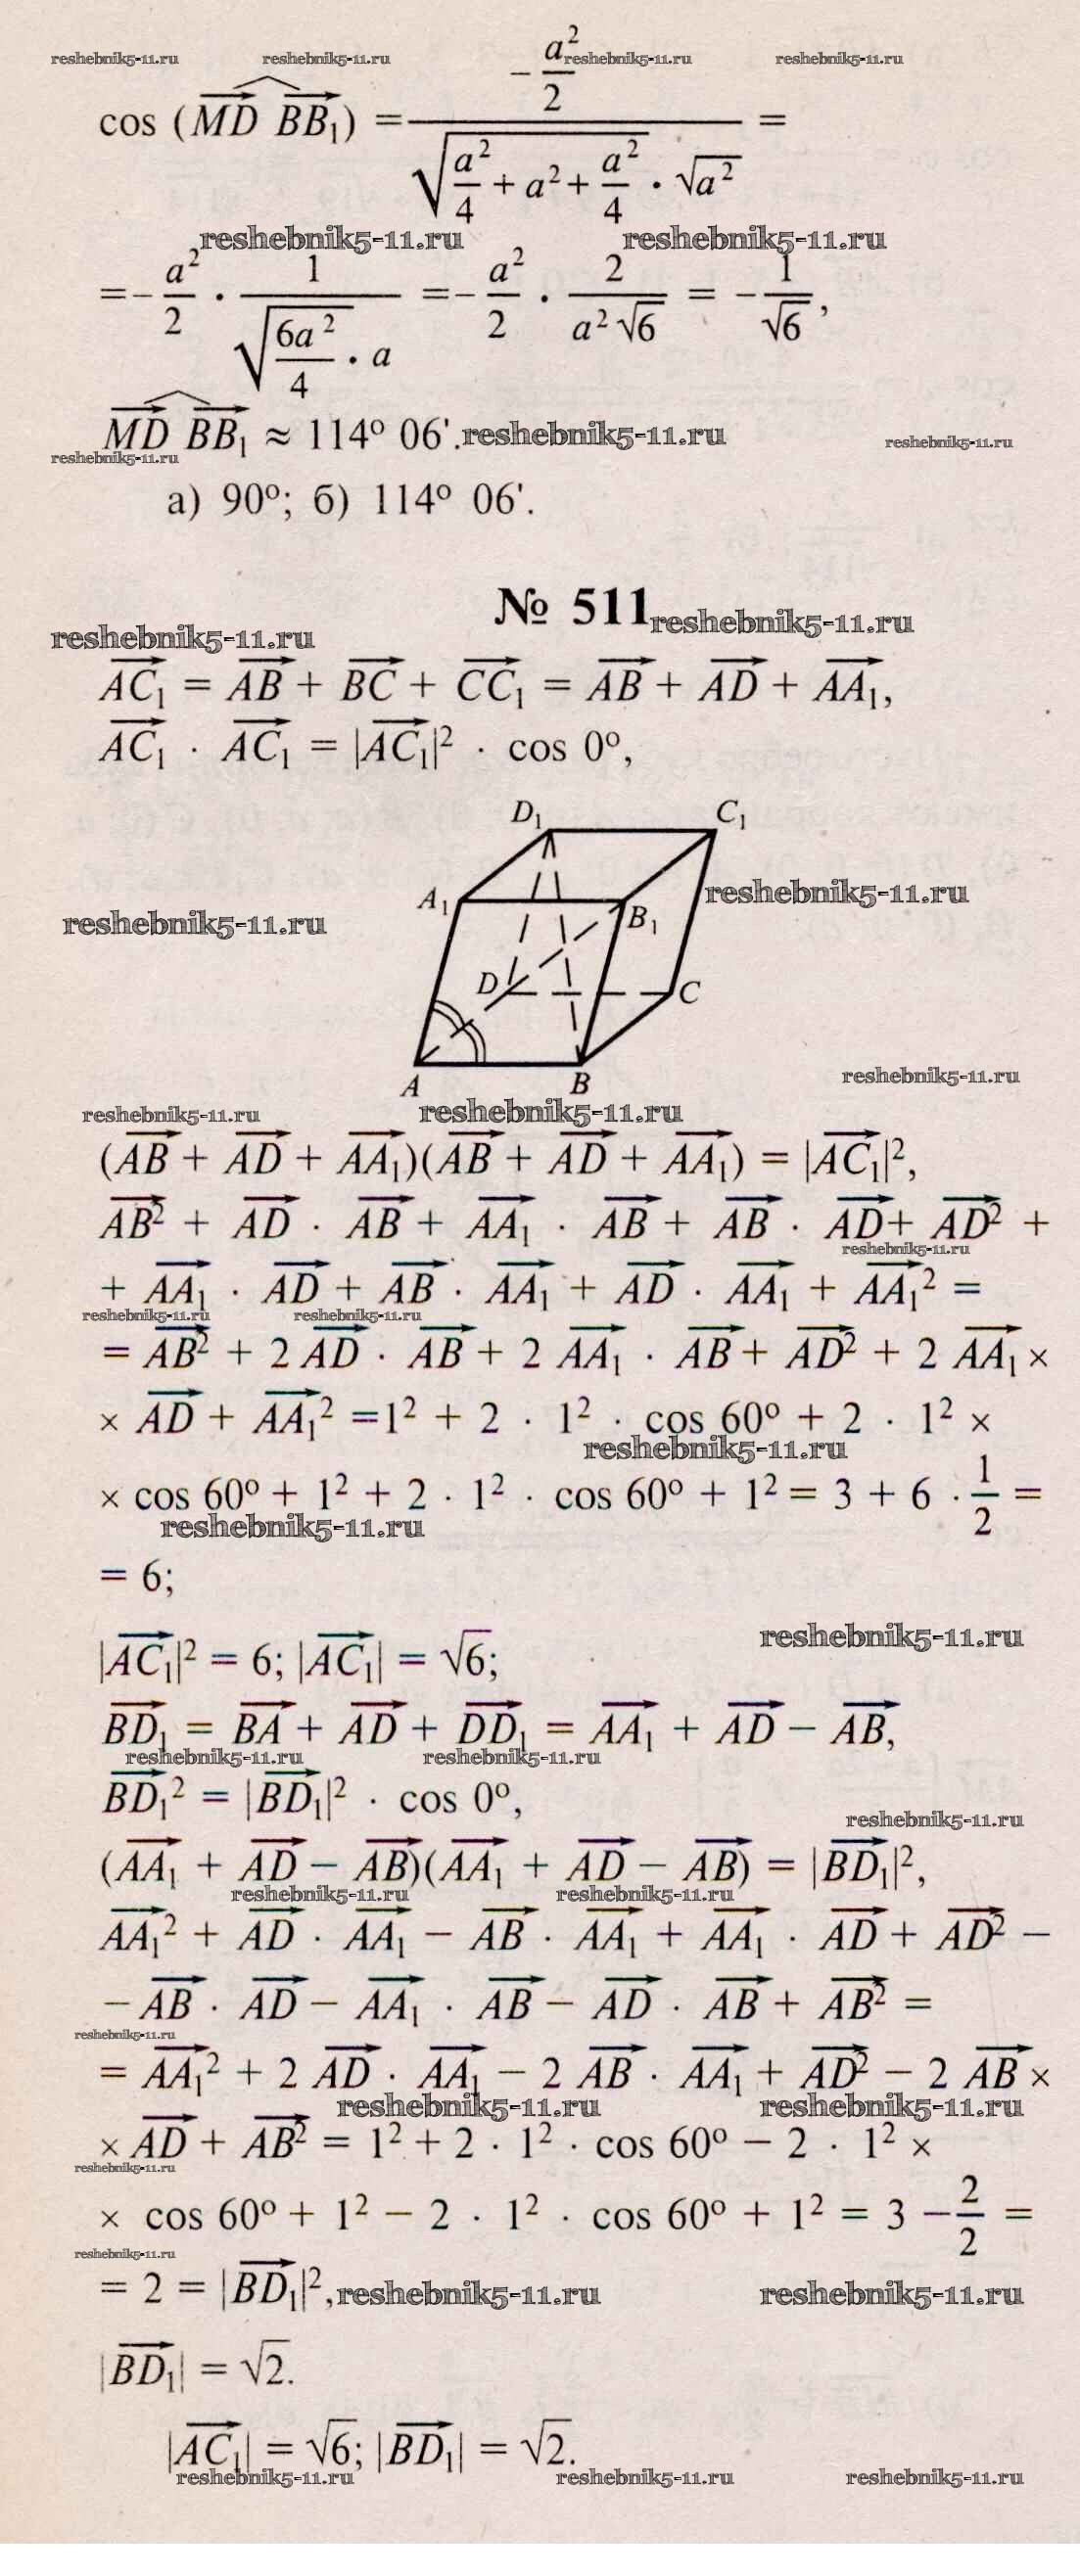 reshebnik5-11.ru reshebnik5-11.ru reshebnik5-11.ru reshebnik5-11.ru
cos (MD BB₁) = (-a²/2)/(√(a²/4 + a² + a²/4) · √a²) =
reshebnik5-11.ru reshebnik5-11.ru
=-a²/2 · 1/(√(6a²/4) · a) =-a²/2 · 2/(a²√6) = -1/√6,
MD BB₁ ≈ 114º 06'. reshebnik5-11.ru reshebnik5-11.ru
reshebnik5-11.ru
а) 90º; б) 114º 06'.
№ 511 reshebnik5-11.ru
reshebnik5-11.ru
AC₁ = AB + BC + CC₁ = AB + AD + AA₁,
AC₁ · AC₁ = |AC₁|² · cos 0º,
D₁ C₁
A₁ B₁ reshebnik5-11.ru
reshebnik5-11.ru
D C
A B reshebnik5-11.ru
reshebnik5-11.ru reshebnik5-11.ru
(AB + AD + AA₁)(AB + AD + AA₁) = |AC₁|²,
AB² + AD · AB + AA₁ · AB + AB · AD + AD² +
reshebnik5-11.ru
+ AA₁ · AD + AB · AA₁ + AD · AA₁ + AA₁² =
reshebnik5-11.ru reshebnik5-11.ru
= AB² + 2 AD · AB + 2 AA₁ · AB + AD² + 2 AA₁ ×
× AD + AA₁² =1² + 2 · 1² · cos 60º + 2 · 1² ×
reshebnik5-11.ru
× cos 60º + 1² + 2 · 1² · cos 60º + 1² = 3 + 6 · 1/2 =
reshebnik5-11.ru
= 6;
reshebnik5-11.ru
|AC₁|² = 6; |AC₁| = √6;
BD₁ = BA + AD + DD₁ = AA₁ + AD – AB,
reshebnik5-11.ru reshebnik5-11.ru
BD₁² = |BD₁|² · cos 0º,
reshebnik5-11.ru
(AA₁ + AD – AB)(AA₁ + AD – AB) = |BD₁|²,
reshebnik5-11.ru reshebnik5-11.ru
AA₁² + AD · AA₁ – AB · AA₁ + AA₁ · AD + AD² –
– AB · AD – AA₁ · AB – AD · AB + AB² =
reshebnik5-11.ru
= AA₁² + 2 AD · AA₁ – 2 AB · AA₁ + AD² – 2 AB ×
reshebnik5-11.ru reshebnik5-11.ru
× AD + AB² = 1² + 2 · 1² · cos 60º – 2 · 1² ×
reshebnik5-11.ru
× cos 60º + 1² – 2 · 1² · cos 60º + 1² = 3 – 2/2 =
reshebnik5-11.ru
= 2 = |BD₁|², reshebnik5-11.ru reshebnik5-11.ru
|BD₁| = √2.
|AC₁| = √6; |BD₁| = √2.
reshebnik5-11.ru reshebnik5-11.ru reshebnik5-11.ru